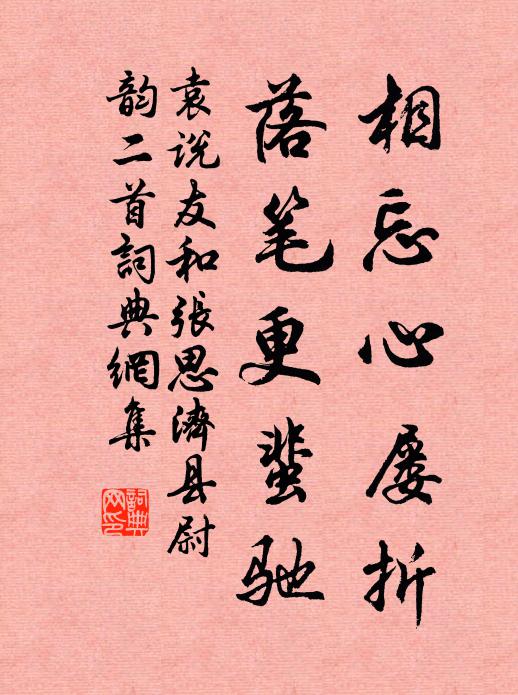 相忘心屡折
落笔更蜚驰
袁说友和張思濟县尉
韵二首詞典網集
詞典网印